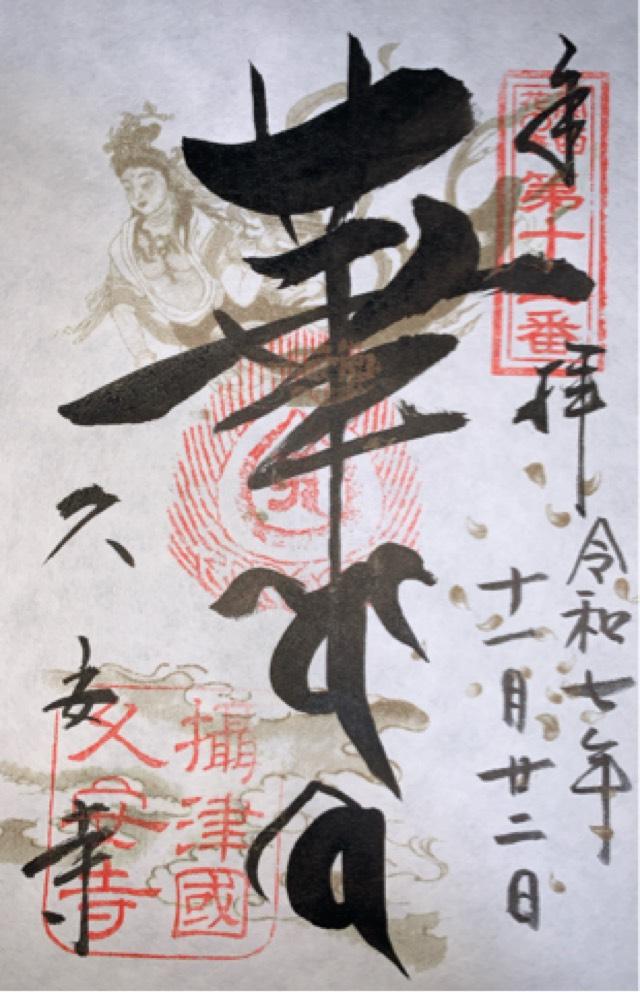 奉拝
第十二番
令和七年
十一月廿二日
華
久安寺
攝津國
久安寺